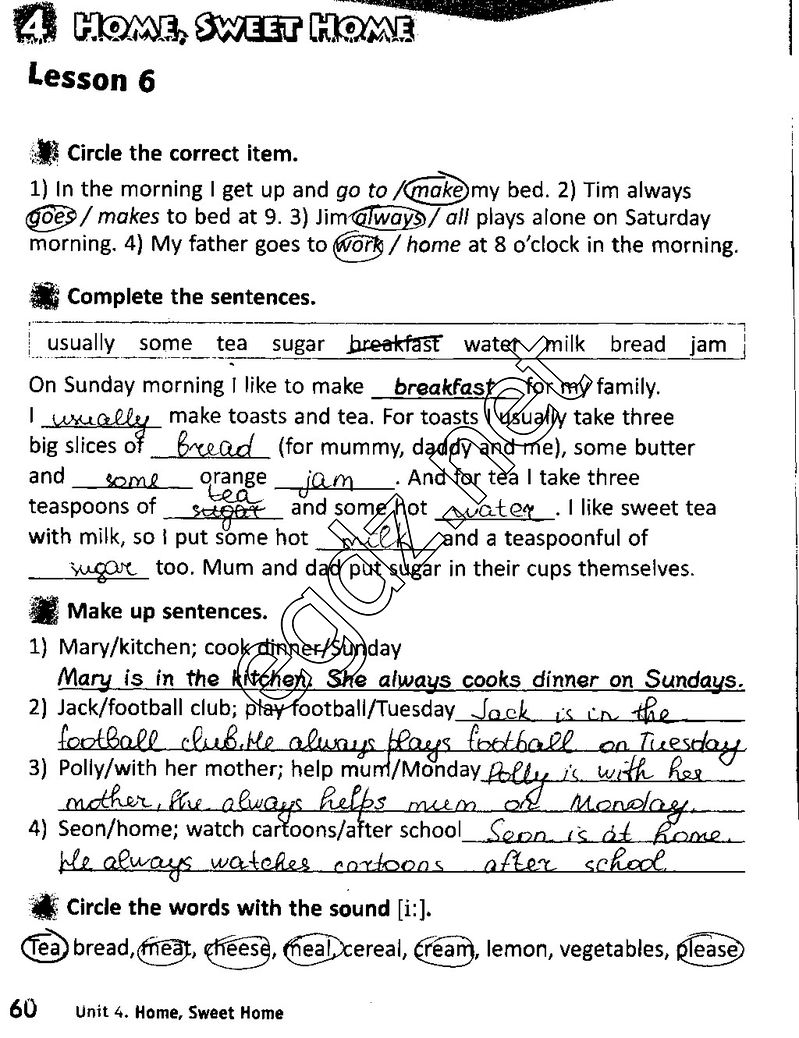 4 HOME, SWEET HOME
Lesson 6
1 Circle the correct item.
1) In the morning I get up and go to / make my bed. 2) Tim always
goes / makes to bed at 9. 3) Jim always / all plays alone on Saturday
morning. 4) My father goes to work / home at 8 o'clock in the morning.
Complete the sentences.
usually some tea sugar breakfast water milk bread jam
On Sunday morning I like to make breakfast for my family.
I usually make toasts and tea. For toasts I usually take three
big slices of bread (for mummy, daddy and me), some butter
and some orange jam. And for tea I take three
tea
teaspoons of sugar and some hot water. I like sweet tea
with milk, so I put some hot milk and a teaspoonful of
sugar too. Mum and dad put sugar in their cups themselves.
Make up sentences.
1) Mary/kitchen; cook dinner/Sunday
Mary is in the kitchen. She always cooks dinner on Sundays.
2) Jack/football club; play football/Tuesday Jack is in the
football club. He always plays football on Tuesday
3) Polly/with her mother; help mum/Monday Polly is with her
mother, She always helps mum on Monday.
4) Seon/home; watch cartoons/after school Seon is at home.
He always watches cartoons after school.
4 Circle the words with the sound [i:].
Tea, bread, meat, cheese, meal, cereal, cream, lemon, vegetables, please
60 Unit 4. Home, Sweet Home
egdz.net